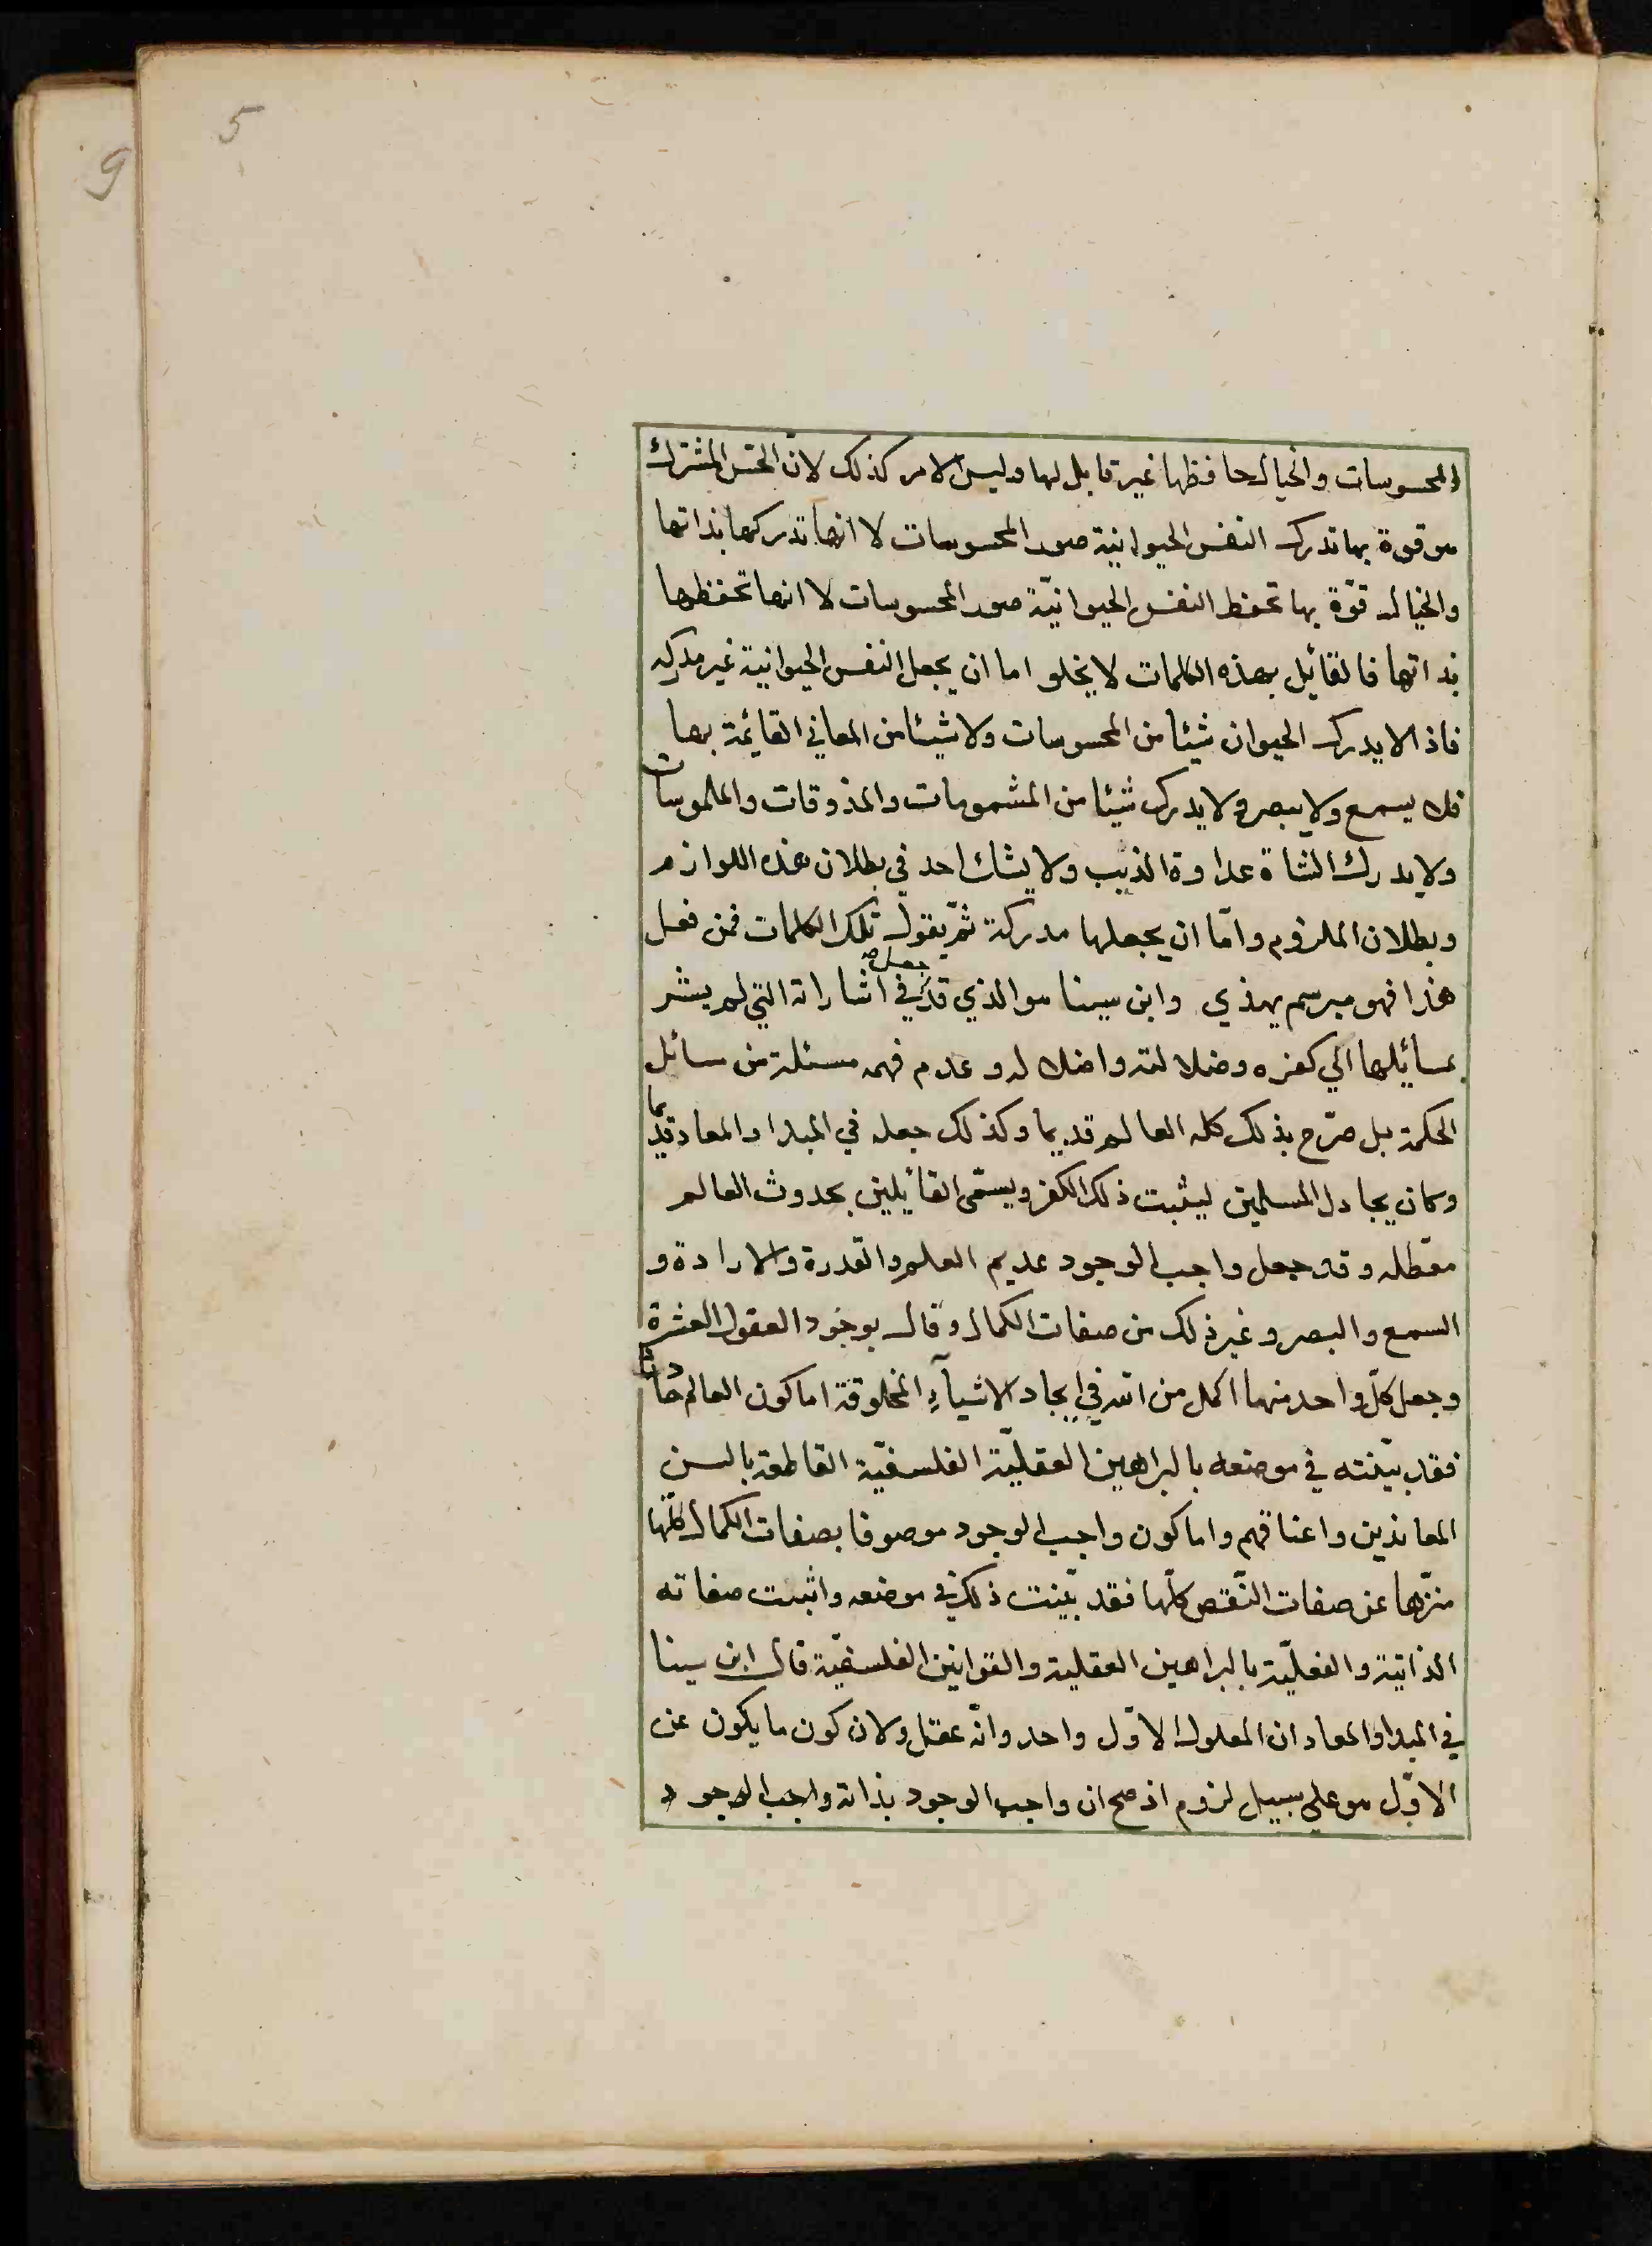 5
9
المحسوسات والخيال حافظها غير قابل لها وليس الامر كذلك لانّ الحسّ المشترك
هو قوة بها تدرك النفس الحيوانية صور المحسوسات لا انها تدركها بذاتها
والخيال قوّة بها تحفظ النفس الحيوانيّة صور المحسوسات لا انها تحفظها
بذاتها فالقائل بهذه الكلمات لا يخلو اما ان يجعل النفس الحيوانية غير مدركه
فاذا لا يدرك الحيوان شيئا من المحسوسات ولا شيئا من المعاني القائمة بها
فلا يسمع ولا يبصر ولا يدرك شيئا من المشمومات والمذوقات والملموسات
ولا يدرك الشاة عداوة الذئب ولا يشك احد في بطلان هذه اللوازم
وبطلان الملزوم وامّا ان يجعلها مدركة ثمّ يقول تلك الكلمات فمن فعل
هذا فهو مبرسم يهذي وابن سينا هو الذي قد جعل في اشاراته التي لم يشر
بمسائلها الي كفره وضلالته واضلاله وعدم فهمه مسئلة من مسائل
الحكمة بل صرّح بذلك كله العالم قديما وكذلك جعله في المبدا والمعاد قديما
وكان يجادل المسلمين ليثبت ذلك الكفر ويسمّى القائلين بحدوث العالم
معطله وقد جعل واجب الوجود عديم العلم والقدرة والارادة و
السمع والبصر وغير ذلك من صفات الكمال وقال بوجود العقول العشرة
وجعل كلّ واحد منها اكمل من الله في ايجاد الاشيآءِ المخلوقة اما كون العالم حادثا
فقد بيّنته في موضعه بالبراهين العقليّة الفلسفيّة القاطعة بالسن
المعاندين واعناقهم واما كون واجب الوجود موصوفا بصفات الكمال كلّها
منزّها عن صفات النّقص كلّها فقد بيّنت ذلك في موضعه واثبت صفاته
الذاتية والفعليّة بالبراهين العقلية والقوانين الفلسفيّة قال ابن سينا
في المبدا والمعاد ان المعلول الاوّل واحد وانّه عقل ولان كون ما يكون عن
الاوّل هو علي سبيل لزوم اذ صح ان واجب الوجود بذاته واجب الوجود